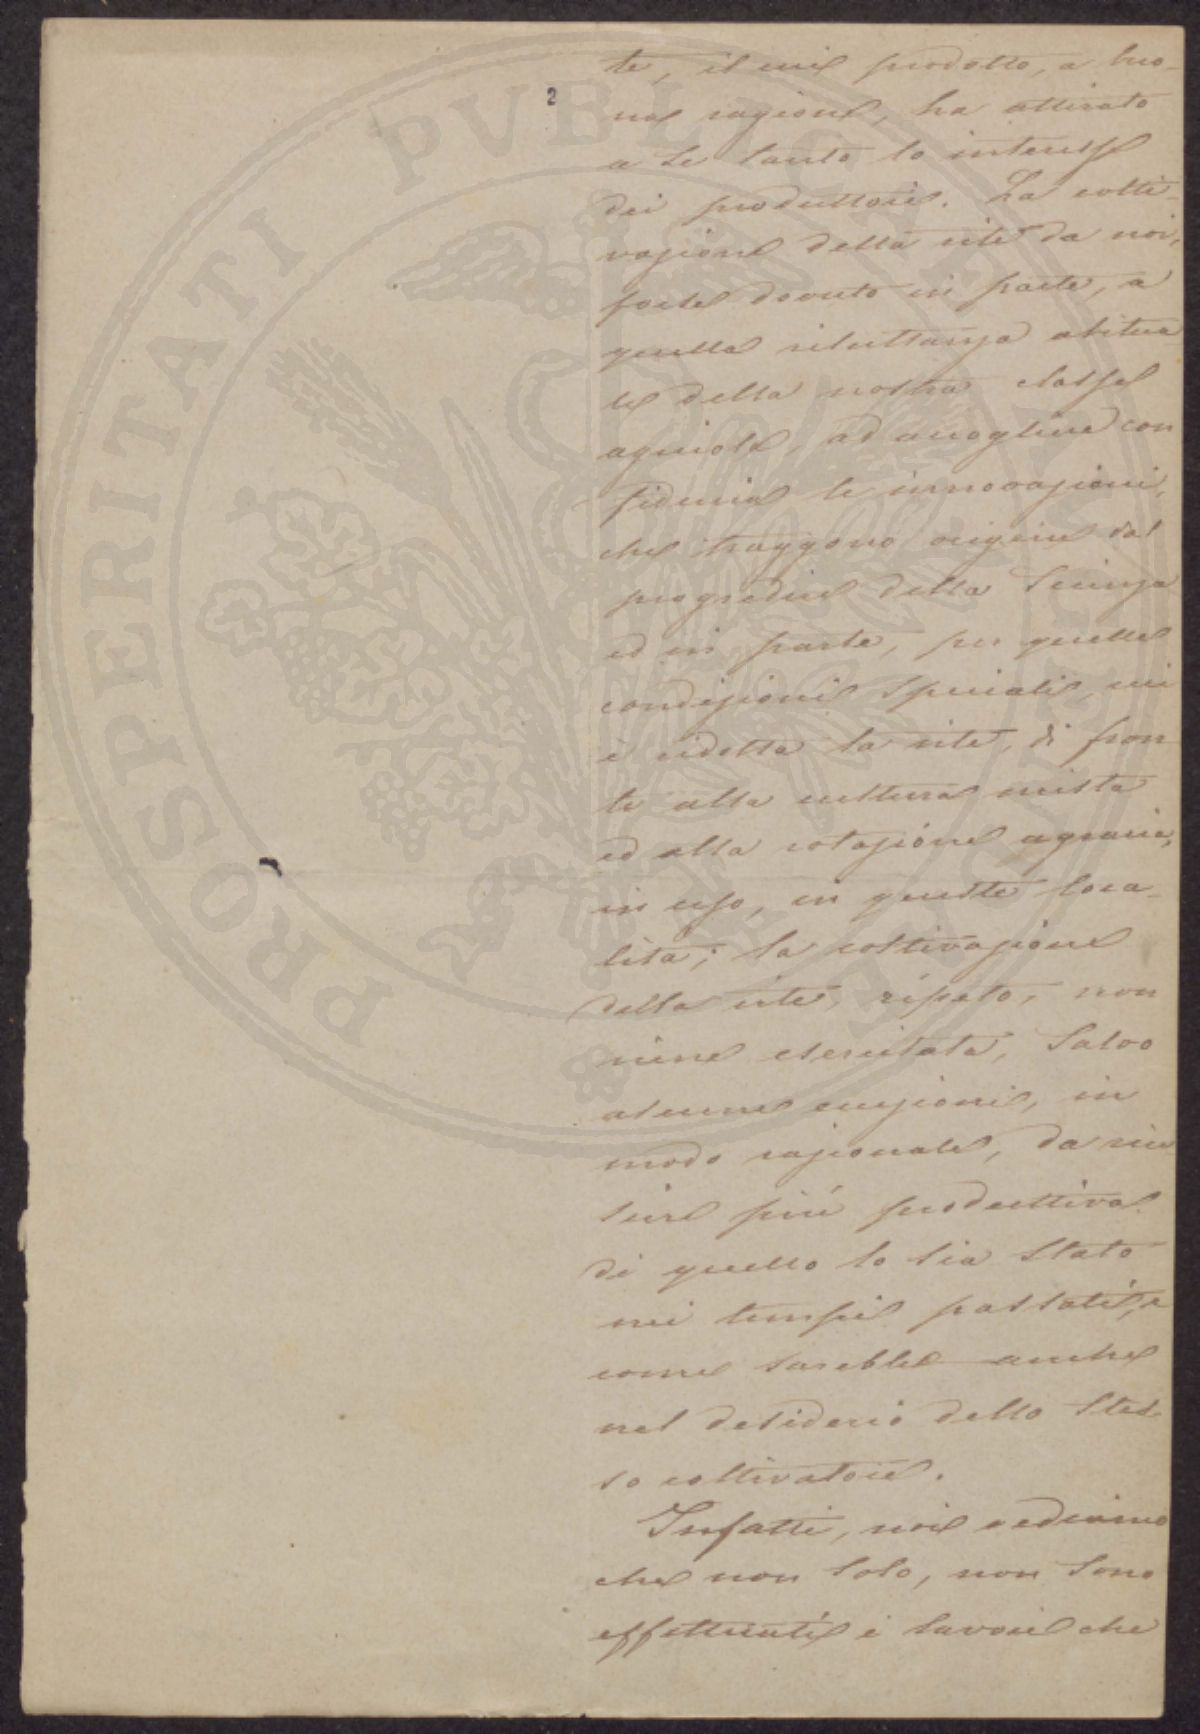 2
te, il cui prodotto, a buo-
na ragione, ha attirato
a se tanto lo interesse
dei produttori. La colti-
vazione della vite da noi,
forse dovuto in parte, a
quella riluttanza abitua
le della nostra classe
agricola, ad accogliere con
fiducia le innovazioni,
che traggono origine dal
progredire della Scienza
ed in parte, per quelle
condizioni speciali, cui
è ridotta la vite, di fron
te alla cultura mista
ed alla rotazione agraria,
in uso, in queste loca-
lità; la coltivazione
della vite, ripeto, non
viene esercitata, salvo
alcune eccezioni, in
modo razionale, da riu
scire più produttiva
di quello lo sia stato
nei tempi passati, e
come sarebbe anche
nel desiderio dello stes-
so coltivatore.
Infatti, noi vediamo
che non solo, non sono
effettuati i lavori che
PROSPERITATI PVBLICAE